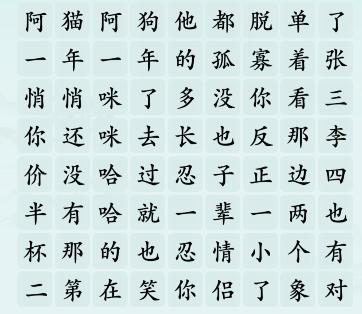 阿猫阿狗他都脱单了
一年一年的孤寡着张
悄悄咪了多没你看三
你还咪去长也反那李
价没哈过忍子正边四
半有哈就一辈一两也
杯那的也忍情小个有
二第在笑你侣了象对